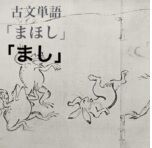 古文単語
「まほし」
「まし」